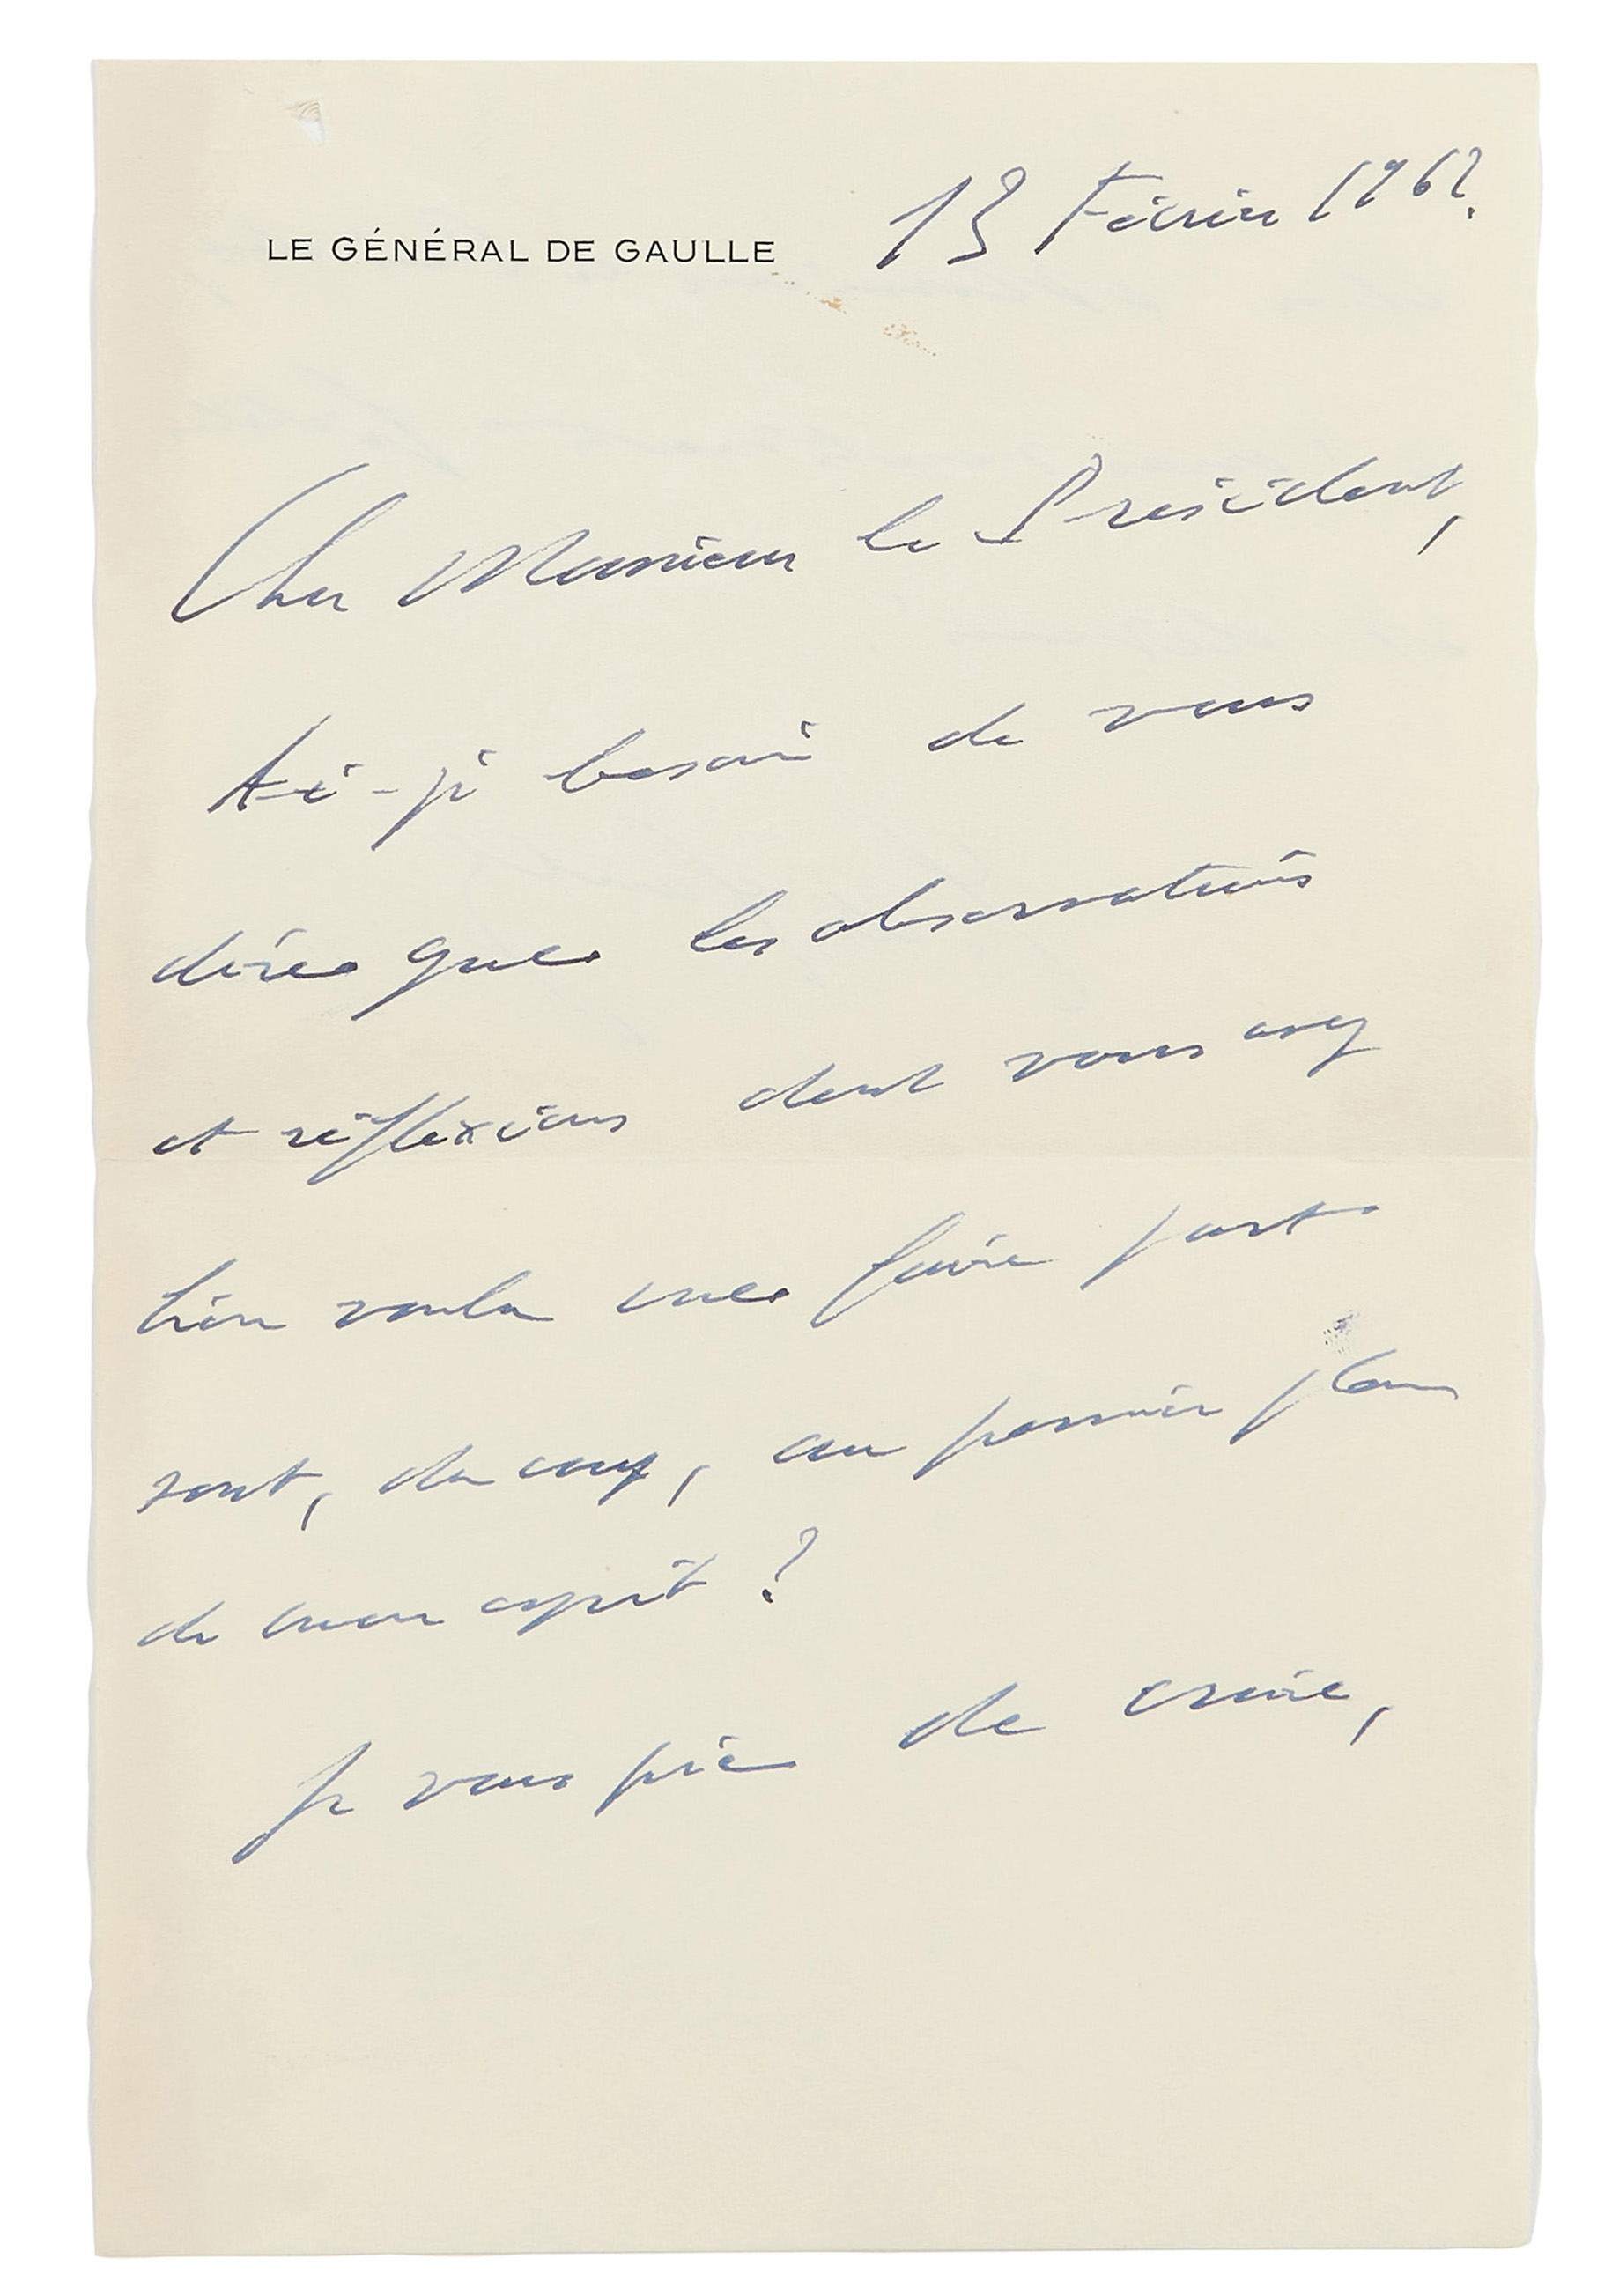 LE GÉNÉRAL DE GAULLE
13 Février 1962.
Cher Monsieur le Président,
Ai-je besoin de vous
dire que les observations
et réflexions dont vous avez
bien voulu me faire part
sont, du coup, au premier plan
de mon esprit ?
Je vous prie de croire,